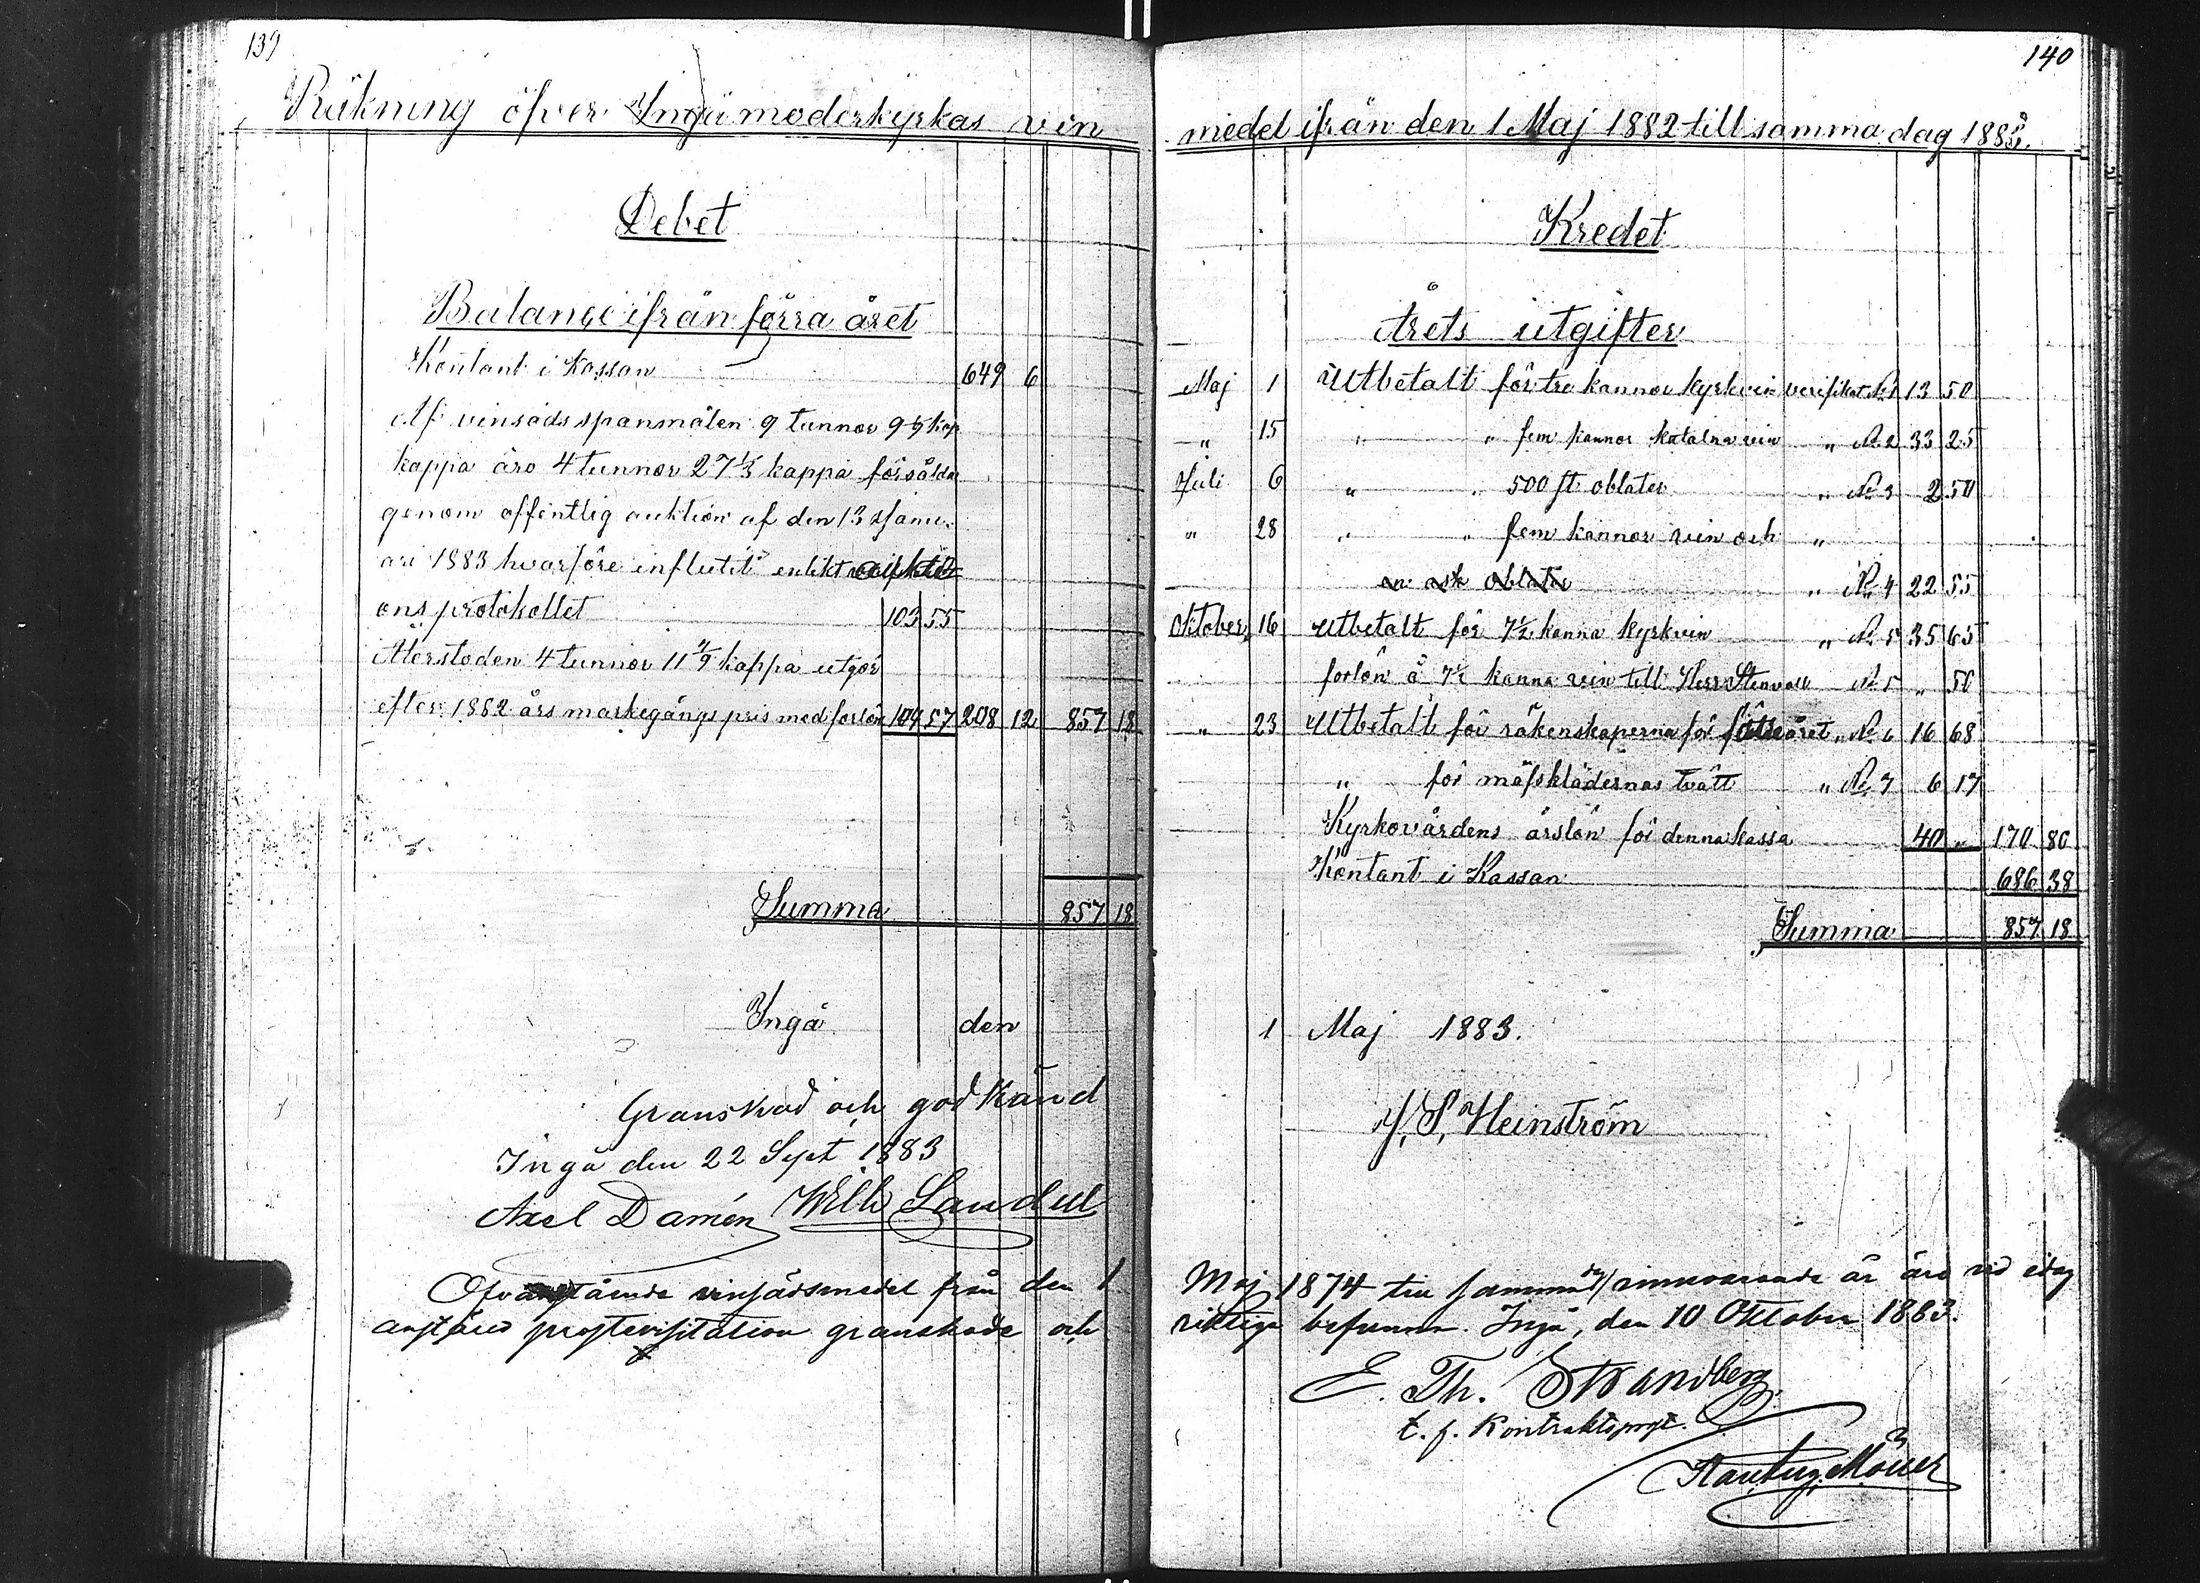 139
Räkning öfver Ingå moderkyrkas vin
Debet
Balance ifrån förra året
Kontant i Kassan 649 6
Af vinsäds spanmålen 9 tunnor 9 4/9 kap
kappa äro 4 tunnor 27 1/3 kappa försålda
genom offentlig auktion af den 13 Janu-
ari 1883 hvarföre influtit enlikt auktio
ons protokollet 103 55
Återstoden 4 tunnor 11 1/9 kappa utgör
efter 1882 års markegångs pris med forlön 104 57 208 12 857 18
Summa 857 18
Ingå den
Granskad och godkänd
Ingå den 22 Sept 1883
Axel Damén Wilh Sandell
Ofvanstående vinsädsmedel från den 1
anstäld prostevisitation granskade och
140
medel ifrån den 1 Maj 1882 till samma dag 1883.
Kredet
Årets utgifter
Maj 1 Utbetalt för tre kannor kyrkvin verifikat № 1 13 50
" 15 " " fem kannor katalna vin " № 2 33 25
Juli 6 " " 500 st. oblater " № 3 2 50
" 28 " " fem kannor vin och "
en ask oblater " № 4 22 55
Oktober 16 Utbetalt för 7 1/2 kanna kyrkvin " № 5 35 65
forlön å 7 1/2 kanna vin till Herr Stenvall № 5 " 50
" 23 Utbetalt för räkenskaperna för förra året " № 6 16 68
" för mässklädernas tvätt " № 7 6 17
Kyrkovärdens årslön för denna kassa 40 " 170 80
Kontant i Kassan 686 38
Summa 857 18
1 Maj 1883.
J. S. Heinström
Maj 1874 till samma dag innevarande år äro vid idag
riktiga befunna. Ingå, den 10 Oktober 1883.
E. Th. Strandberg
t. f. Kontraktsprost.